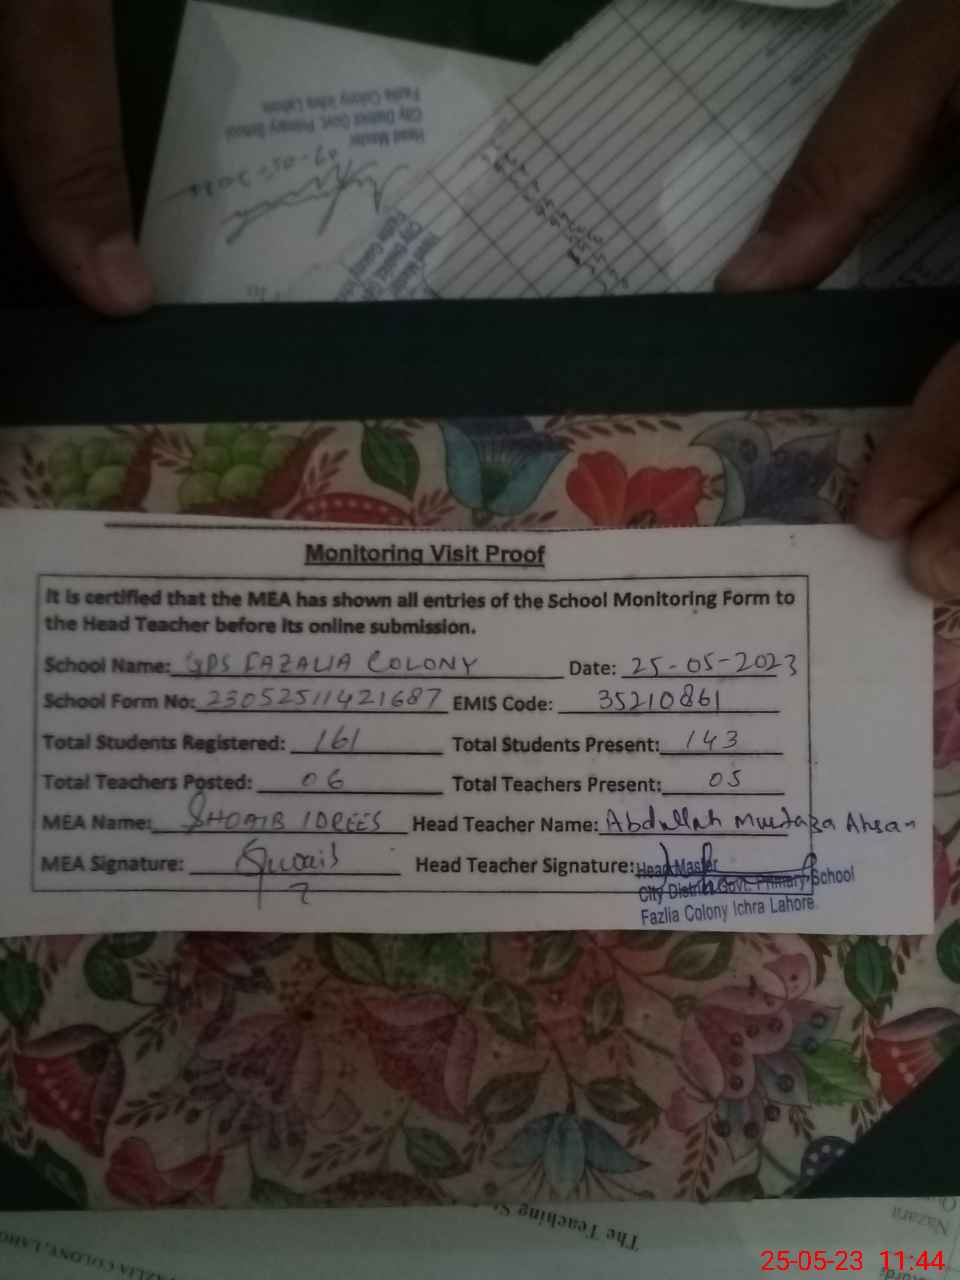 Head Master
City District Govt. Primary School
Fazlia Colony Ichra Lahore
Monitoring Visit Proof
It is certified that the MEA has shown all entries of the School Monitoring Form to
the Head Teacher before its online submission.
School Name: GPS FAZALIA COLONY Date: 25-05-2023
School Form No: 23052511421687 EMIS Code: 35210861
Total Students Registered: 161 Total Students Present: 143
Total Teachers Posted: 06 Total Teachers Present: 05
MEA Name: SHOAIB IDREES Head Teacher Name: Abdullah Murtaza Ahsan
MEA Signature: Head Teacher Signature:
Head Master
City District Govt. Primary School
Fazlia Colony Ichra Lahore.
The Teaching
AZLIA COLONY, LAHO
Nazara
25-05-23 11:44